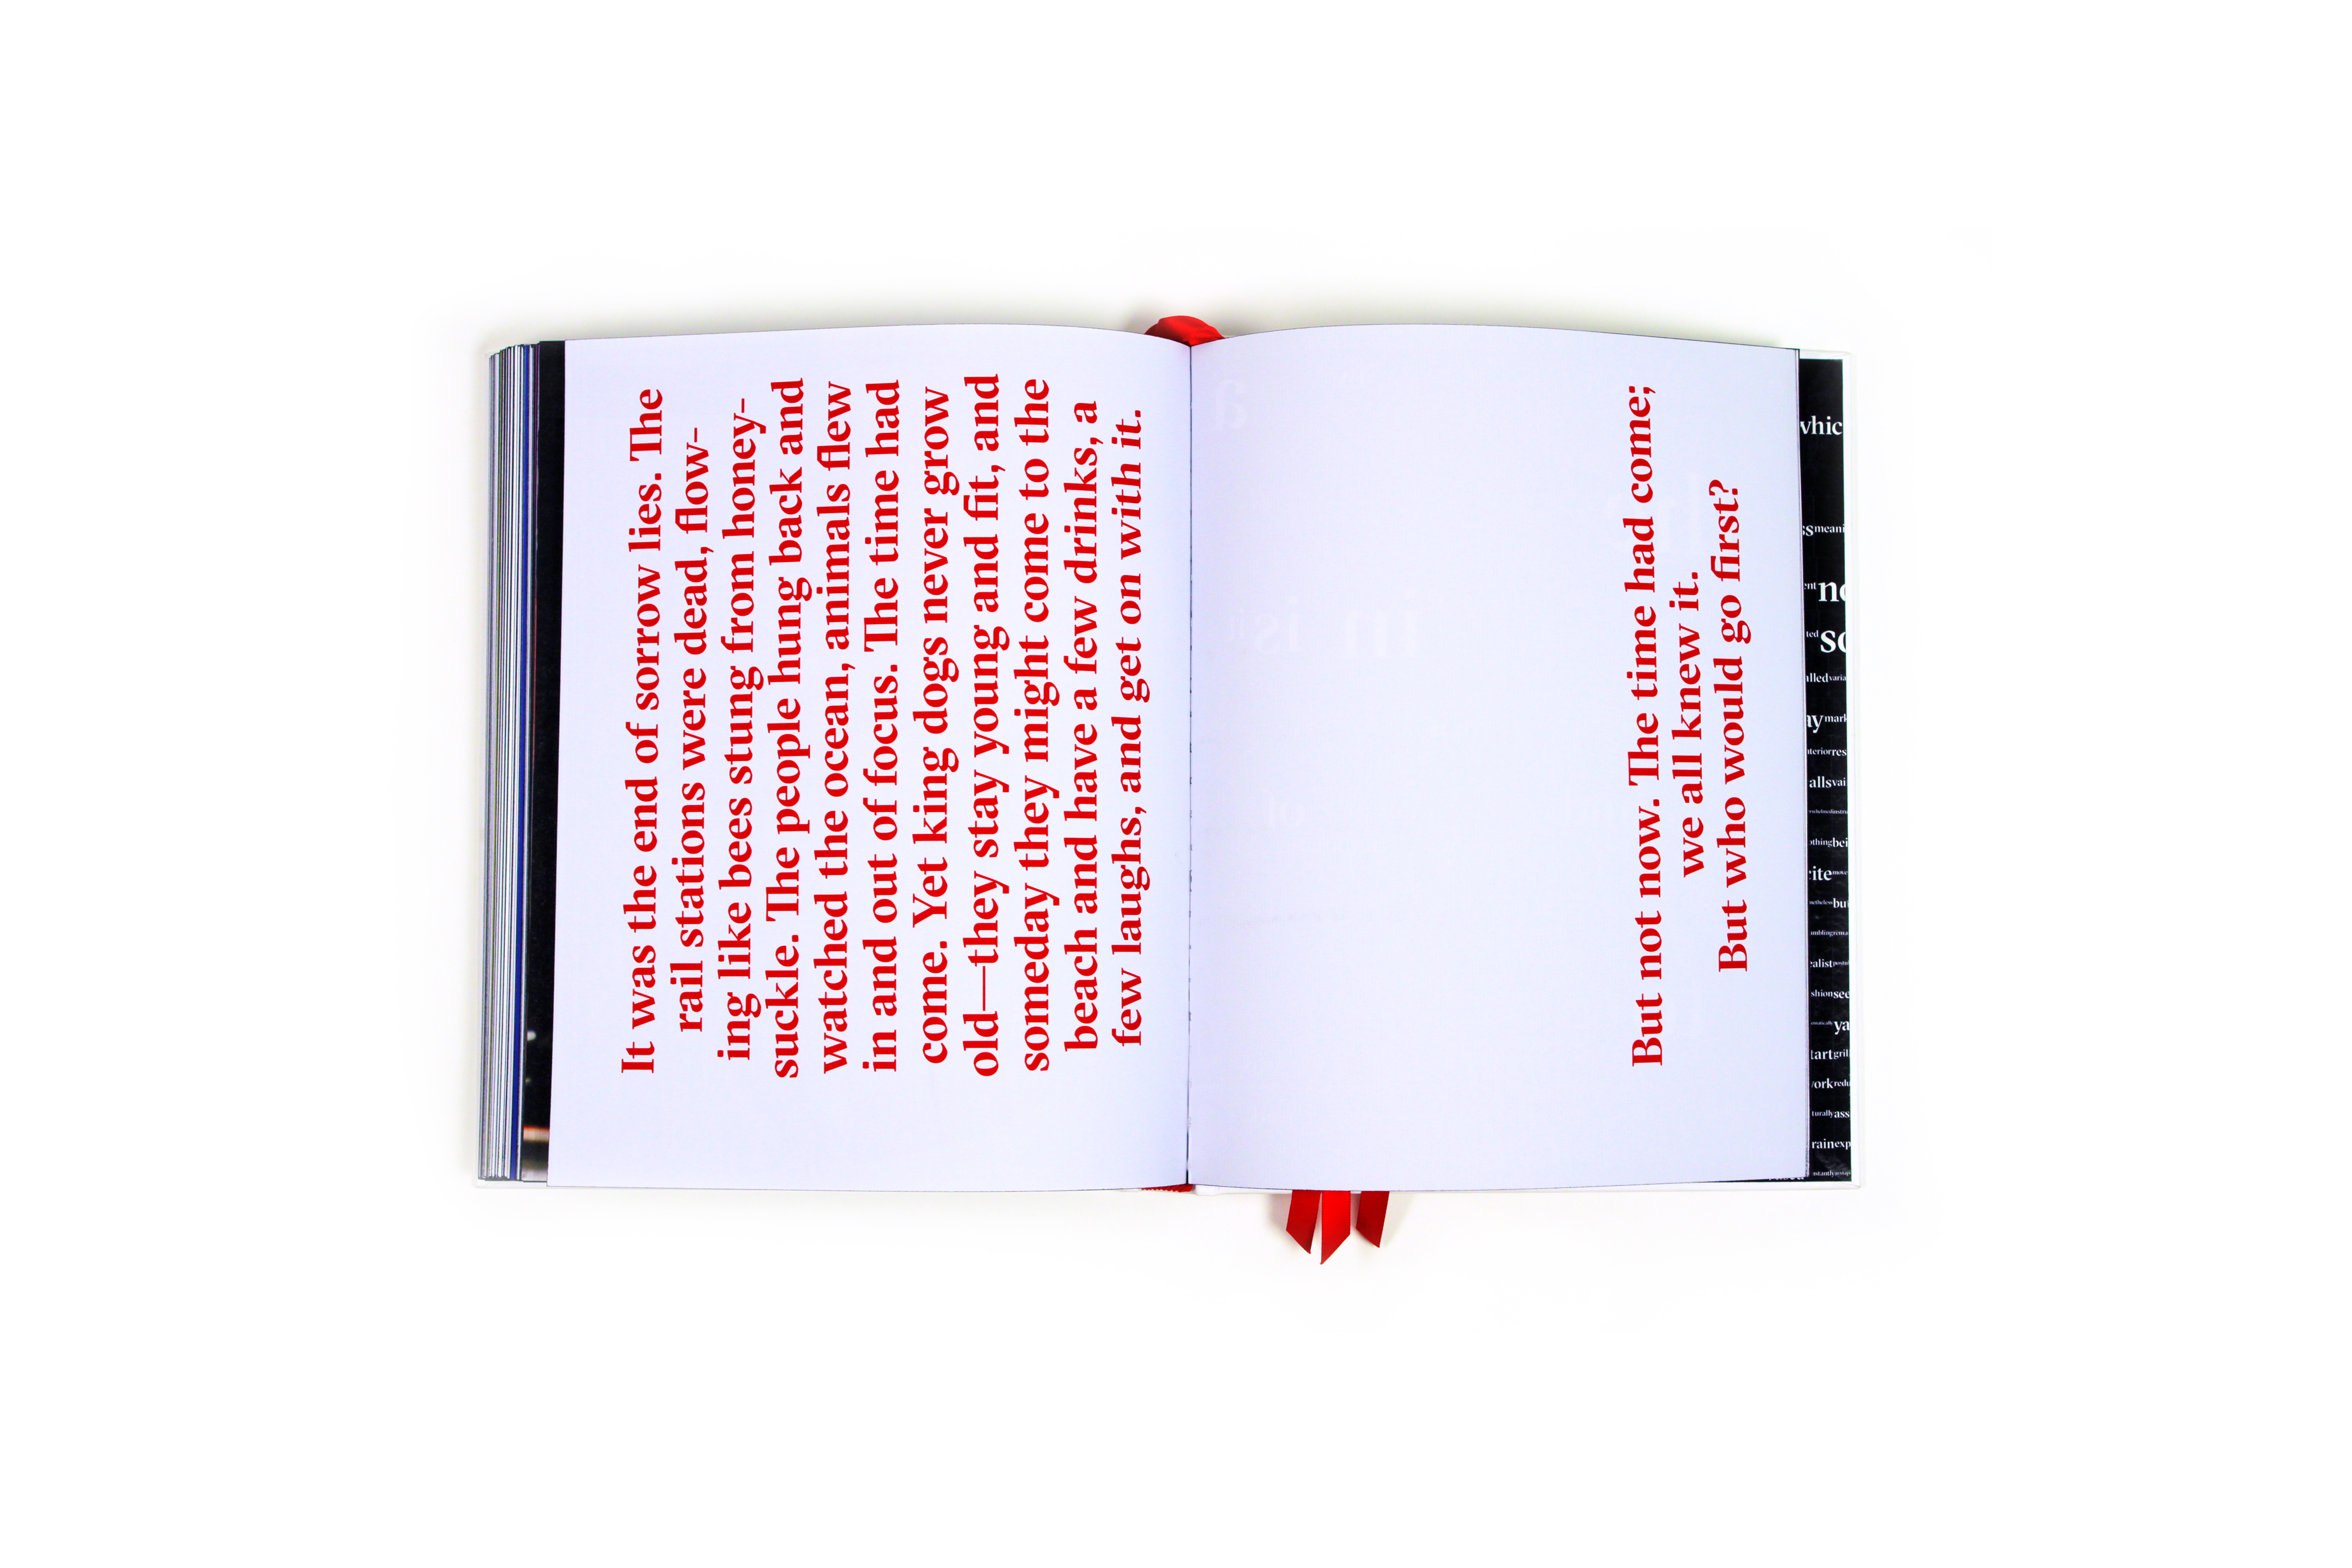 It was the end of sorrow lies. The
rail stations were dead, flow-
ing like bees stung from honey-
suckle. The people hung back and
watched the ocean, animals flew
in and out of focus. The time had
come. Yet king dogs never grow
old—they stay young and fit, and
someday they might come to the
beach and have a few drinks, a
few laughs, and get on with it.
But not now. The time had come;
we all knew it.
But who would go first?